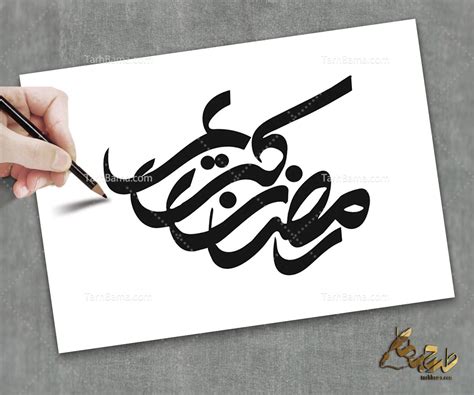 TarhBama.com TarhBama.com
رمضان کریم
TarhBama.com TarhBama.com
TarhBama.com TarhBama.com
tarhbama.com